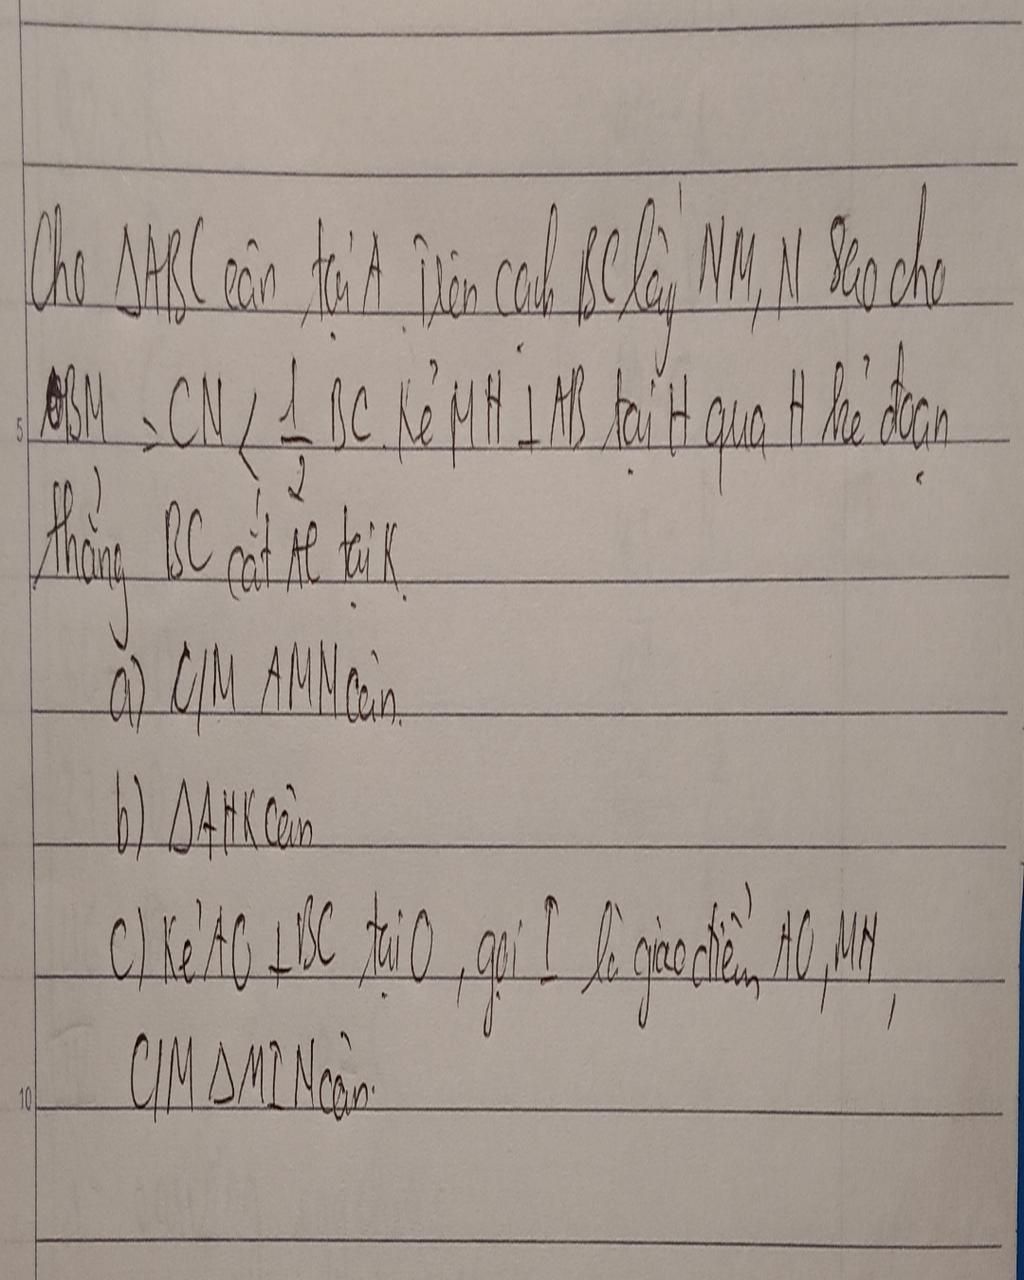 Cho ΔABC cân tại A. Trên cạnh BC lấy NM, N sao cho
BM = CN < 1/2 BC. Kẻ MH ⊥ AB tại H qua H kẻ đoạn
thẳng BC cắt AC tại K.
a) C/M AMN cân.
b) ΔAHK cân
c) Kẻ AO ⊥ BC tại O, gọi I là giao điểm AO, MH,
C/M ΔMIN cân.
5
10